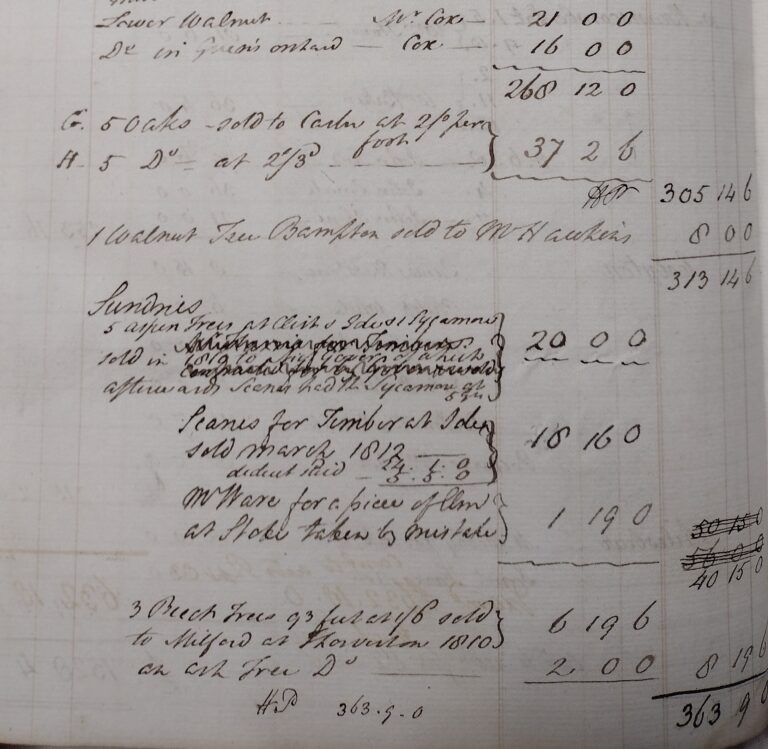 Lower Walnut Mr Cox — 21 0 0
Do in Green's orchard — Cox — 16 0 0
268 12 0
G. 5 Oaks — sold to Carter at 2/6 per foot
H. 5 Do — at 2s/3d 37 2 6
HP 305 14 6
1 Walnut Tree Bampton sold to Mr Hawkins 8 0 0
313 14 6
Sundries
5 aspen Trees at & Ide 1 Sycamore
sold in 1810 to of which 20 0 0
afterwards Scanes had the Sycamore at
Scanes for Timber at Ide
sold march 1812 — 18 16 0
deduct said 24. 1. 0
5. 5. 0
Mr Ware for a piece of Elm
at Stoke taken by mistake 1 19 0
50 15 0
56 0 0
40 15 0
3 Beech Trees 93 feet at 1/6 sold
to Milford at Thorverton 1810 6 19 6
an ash Tree Do — 2 0 0 8 19 6
HP 363. 9. 0 363 9 0